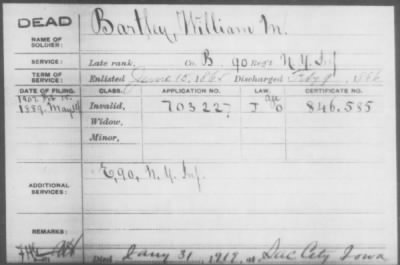 DEAD
Bartley, William M.
NAME OF SOLDIER:
SERVICE: Late rank, Co. B, 90 Reg't N.Y. Inf
TERM OF SERVICE: Enlisted June 15, 186 Discharged Feb 9, 1866
DATE OF FILING. CLASS. APPLICATION NO. LAW. CERTIFICATE NO.
1907
1889. May Invalid, 703227 J Age 846.585
Widow,
Minor,
ADDITIONAL SERVICES: E, 90, N.Y. Inf.
REMARKS:
Died Jany 31, 1918, at Sac City Iowa